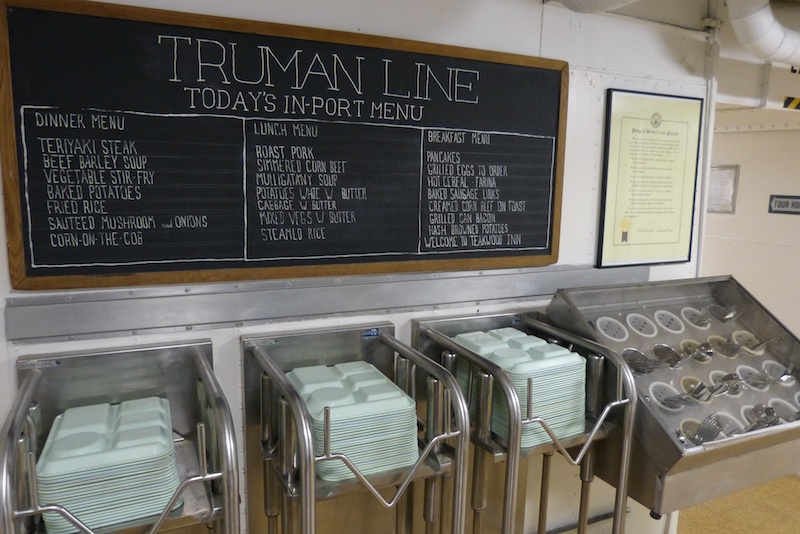 TRUMAN LINE
TODAY'S IN-PORT MENU
DINNER MENU
TERIYAKI STEAK
BEEF BARLEY SOUP
VEGETABLE STIR-FRY
BAKED POTATOES
FRIED RICE
SAUTEED MUSHROOM and ONIONS
CORN-ON-THE-COB
LUNCH MENU
ROAST PORK
SIMMERED CORN BEEF
MULLIGATAWNY SOUP
POTATOES WHITE W/ BUTTER
CABBAGE W BUTTER
MIXED VEGS W/ BUTTER
STEAMED RICE
BREAKFAST MENU
PANCAKES
GRILLED EGGS TO ORDER
HOT CEREAL-FARINA
BAKED SAUSAGE LINKS
CREAMED CORN BEEF ON TOAST
GRILLED CAN BACON
HASH BROWNED POTATOES
WELCOME TO TEAKWOOD INN
TOUR